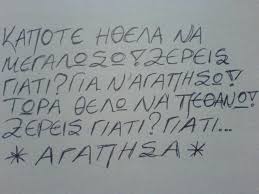 ΚΑΠΟΤΕ ΗΘΕΛΑ ΝΑ
ΜΕΓΑΛΩΣΩ! ΞΕΡΕΙΣ
ΓΙΑΤΙ? ΓΙΑ Ν'ΑΓΑΠΗΣΩ!
ΤΩΡΑ ΘΕΛΩ ΝΑ ΠΕΘΑΝΩ!
ΞΕΡΕΙΣ ΓΙΑΤΙ? ΓΙΑΤΙ...
*ΑΓΑΠΗΣΑ*